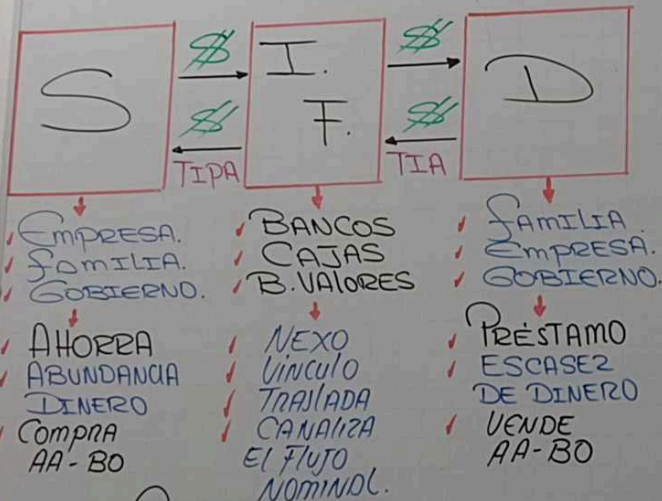 S
$ $
I.
F.
$ $
D
TIPA
TIA
EMPRESA.
FAMILIA.
GOBIERNO.
AHORRA
ABUNDANCIA
DINERO
COMPRA
AA-BO
BANCOS
CAJAS
B. VALORES
NEXO
VINCULO
TRASLADA
CANALIZA
El FlUJO
NOMINAL.
FAMILIA
EMPRESA.
GOBIERNO.
PRÉSTAMO
ESCASEZ
DE DINERO
VENDE
AA-BO